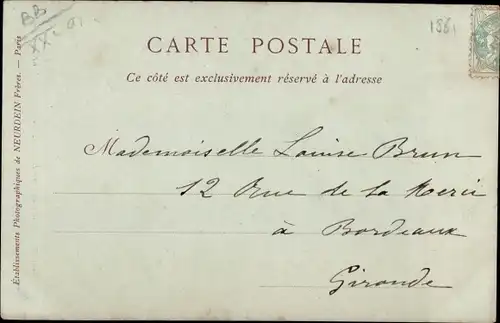 BB
XX-01
1861
CARTE POSTALE
Ce côté est exclusivement réservé à l'adresse
Mademoiselle Louise Brun
12 Rue de la
à Bordeaux
Gironde
Etablissements Photographiques de NEURDEIN Frères. — Paris